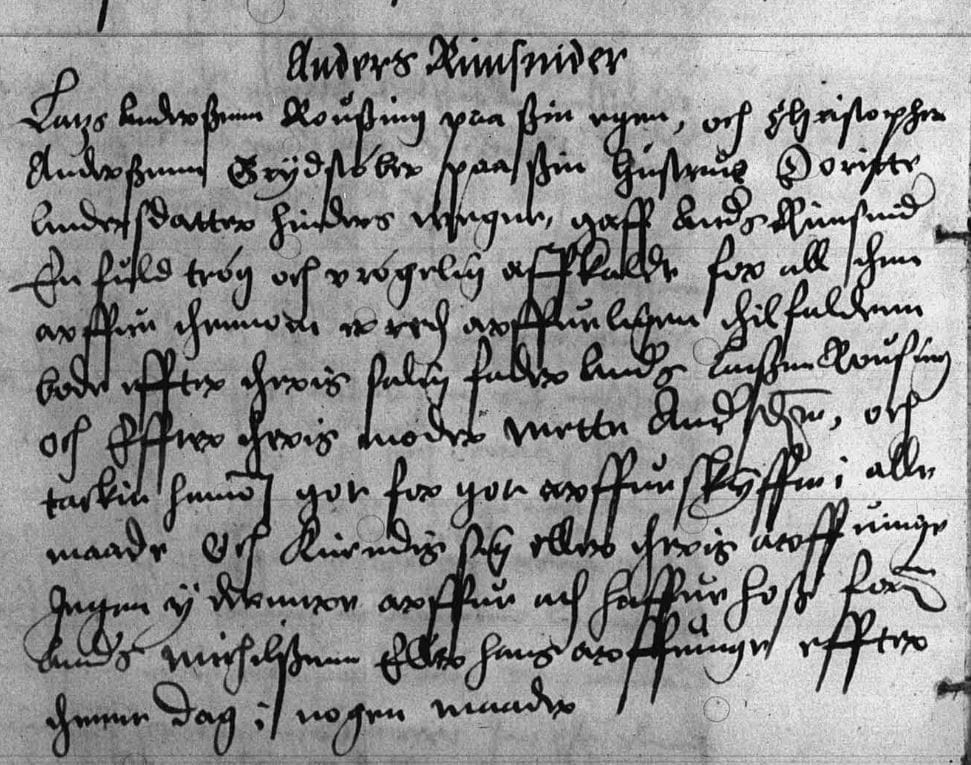 Anders Rimsnider
Lauss Anderssenn Roussing paa ssin egen, och Christopher
Anderssenn Grydstøber paa ssin hustrues Doritte
Andersdatter hinders wegne, gaff Anders Rimsnid
En fuld trög och vrögelig affkalde for all then
arffue thennom er rett arffueligen tilfaldenn
bode effter theris salig fader Anders Laussen Roussing
och Effter theris moder Mette And , och
tackit hannom got for got arffue skyffte i alle
maade Och Kiendis sig eller theris arffuinge
Ingen ydermere arffue att haffue hoss for
Anders Michelssenn Eller hans arffuinge effter
thenne dag i nogen maader